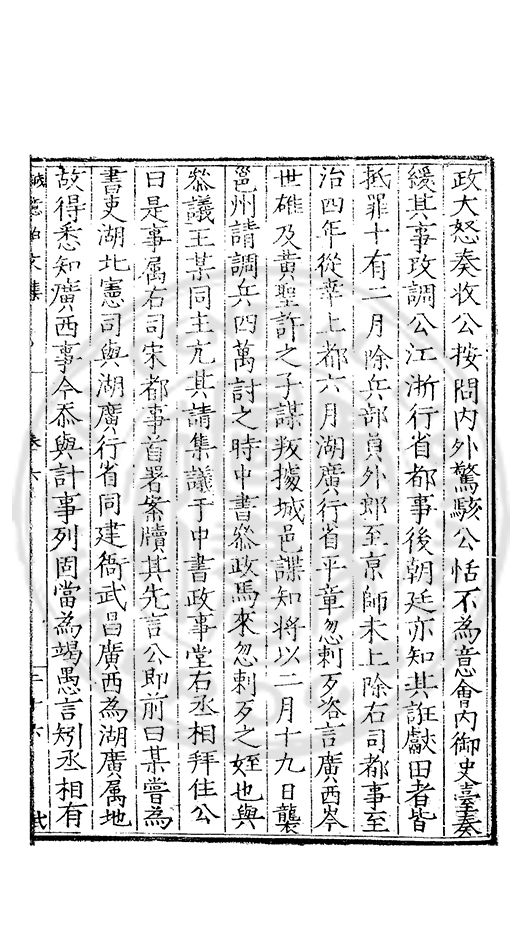 政大怒奏收公按問内外驚駭公恬不為意會内御史臺奏
緩其事攺調公江浙行省都事後朝廷亦知其誑獻田者皆
抵罪十有二月除兵部貟外郎至京師未上除右司都事至
治四年從幸上都六月湖廣行省平章忽剌歹咨言廣西岑
世礁及黃聖許之子謀叛據城邑諜知将以二月十九日襲
邕州請調兵四萬討之時中書叅政馬來忽剌歹之姪也與
叅議王某同主亢其請集議于中書政事堂右丞相拜住公
曰是事属右司宋都事首署案牘其先言公即前曰某嘗為
書吏湖北憲司與湖廣行省同建衙武昌廣西為湖廣属地
故得悉知廣西事今忝與計事列固當為竭愚言矧丞相有
誠意伯文集
卷十六
二十六